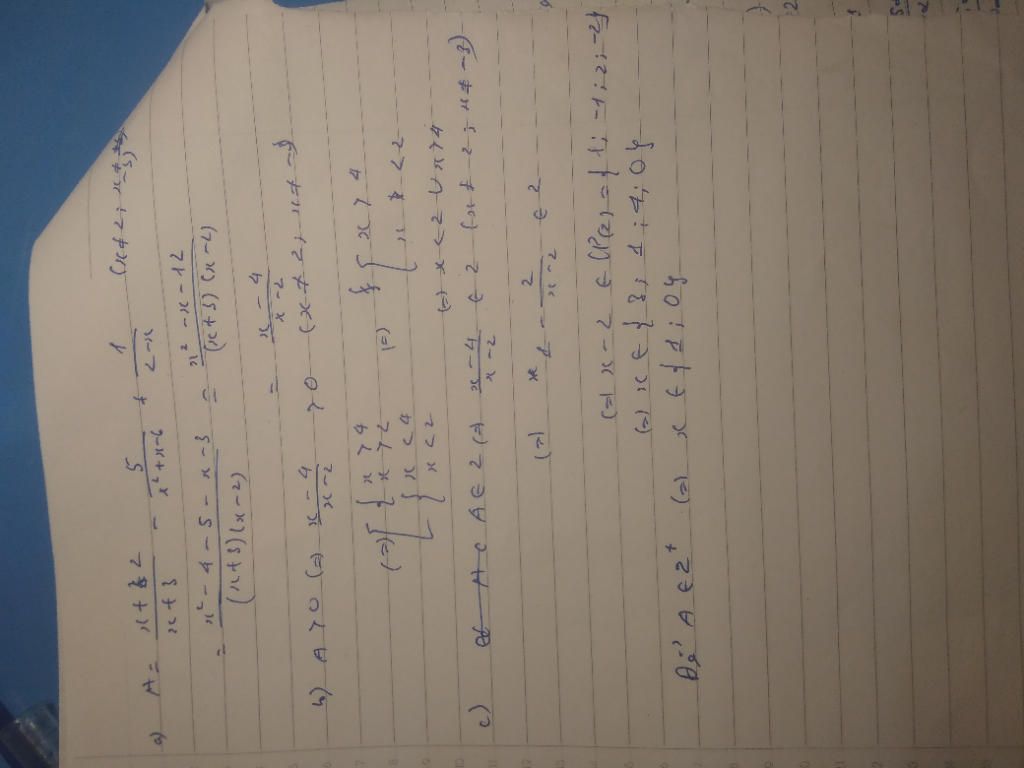 a) A = (x+2)/(x+3) - 5/(x²+x-6) + 1/(2-x) (x≠2; x≠-3)
= (x²-4-5-x-3)/((x+3)(x-2)) = (x²-x-12)/((x+3)(x-2))
= (x-4)/(x-2)
b) A > 0 (=) (x-4)/(x-2) > 0 (x≠2; x≠-3)
(=) [ { x > 4 x > 2 (=) [ x > 4
{ x < 4 x < 2 x < 2
(=) x < 2 V x > 4
c) A ∈ Z (=) (x-4)/(x-2) ∈ Z (x≠2; x≠-3)
(=) 1 - 2/(x-2) ∈ Z
(=) x-2 ∈ Ư(2) = {1; -1; 2; -2}
(=) x ∈ {3; 1; 4; 0}
Để A ∈ Z⁺ (=) x ∈ {1; 0}